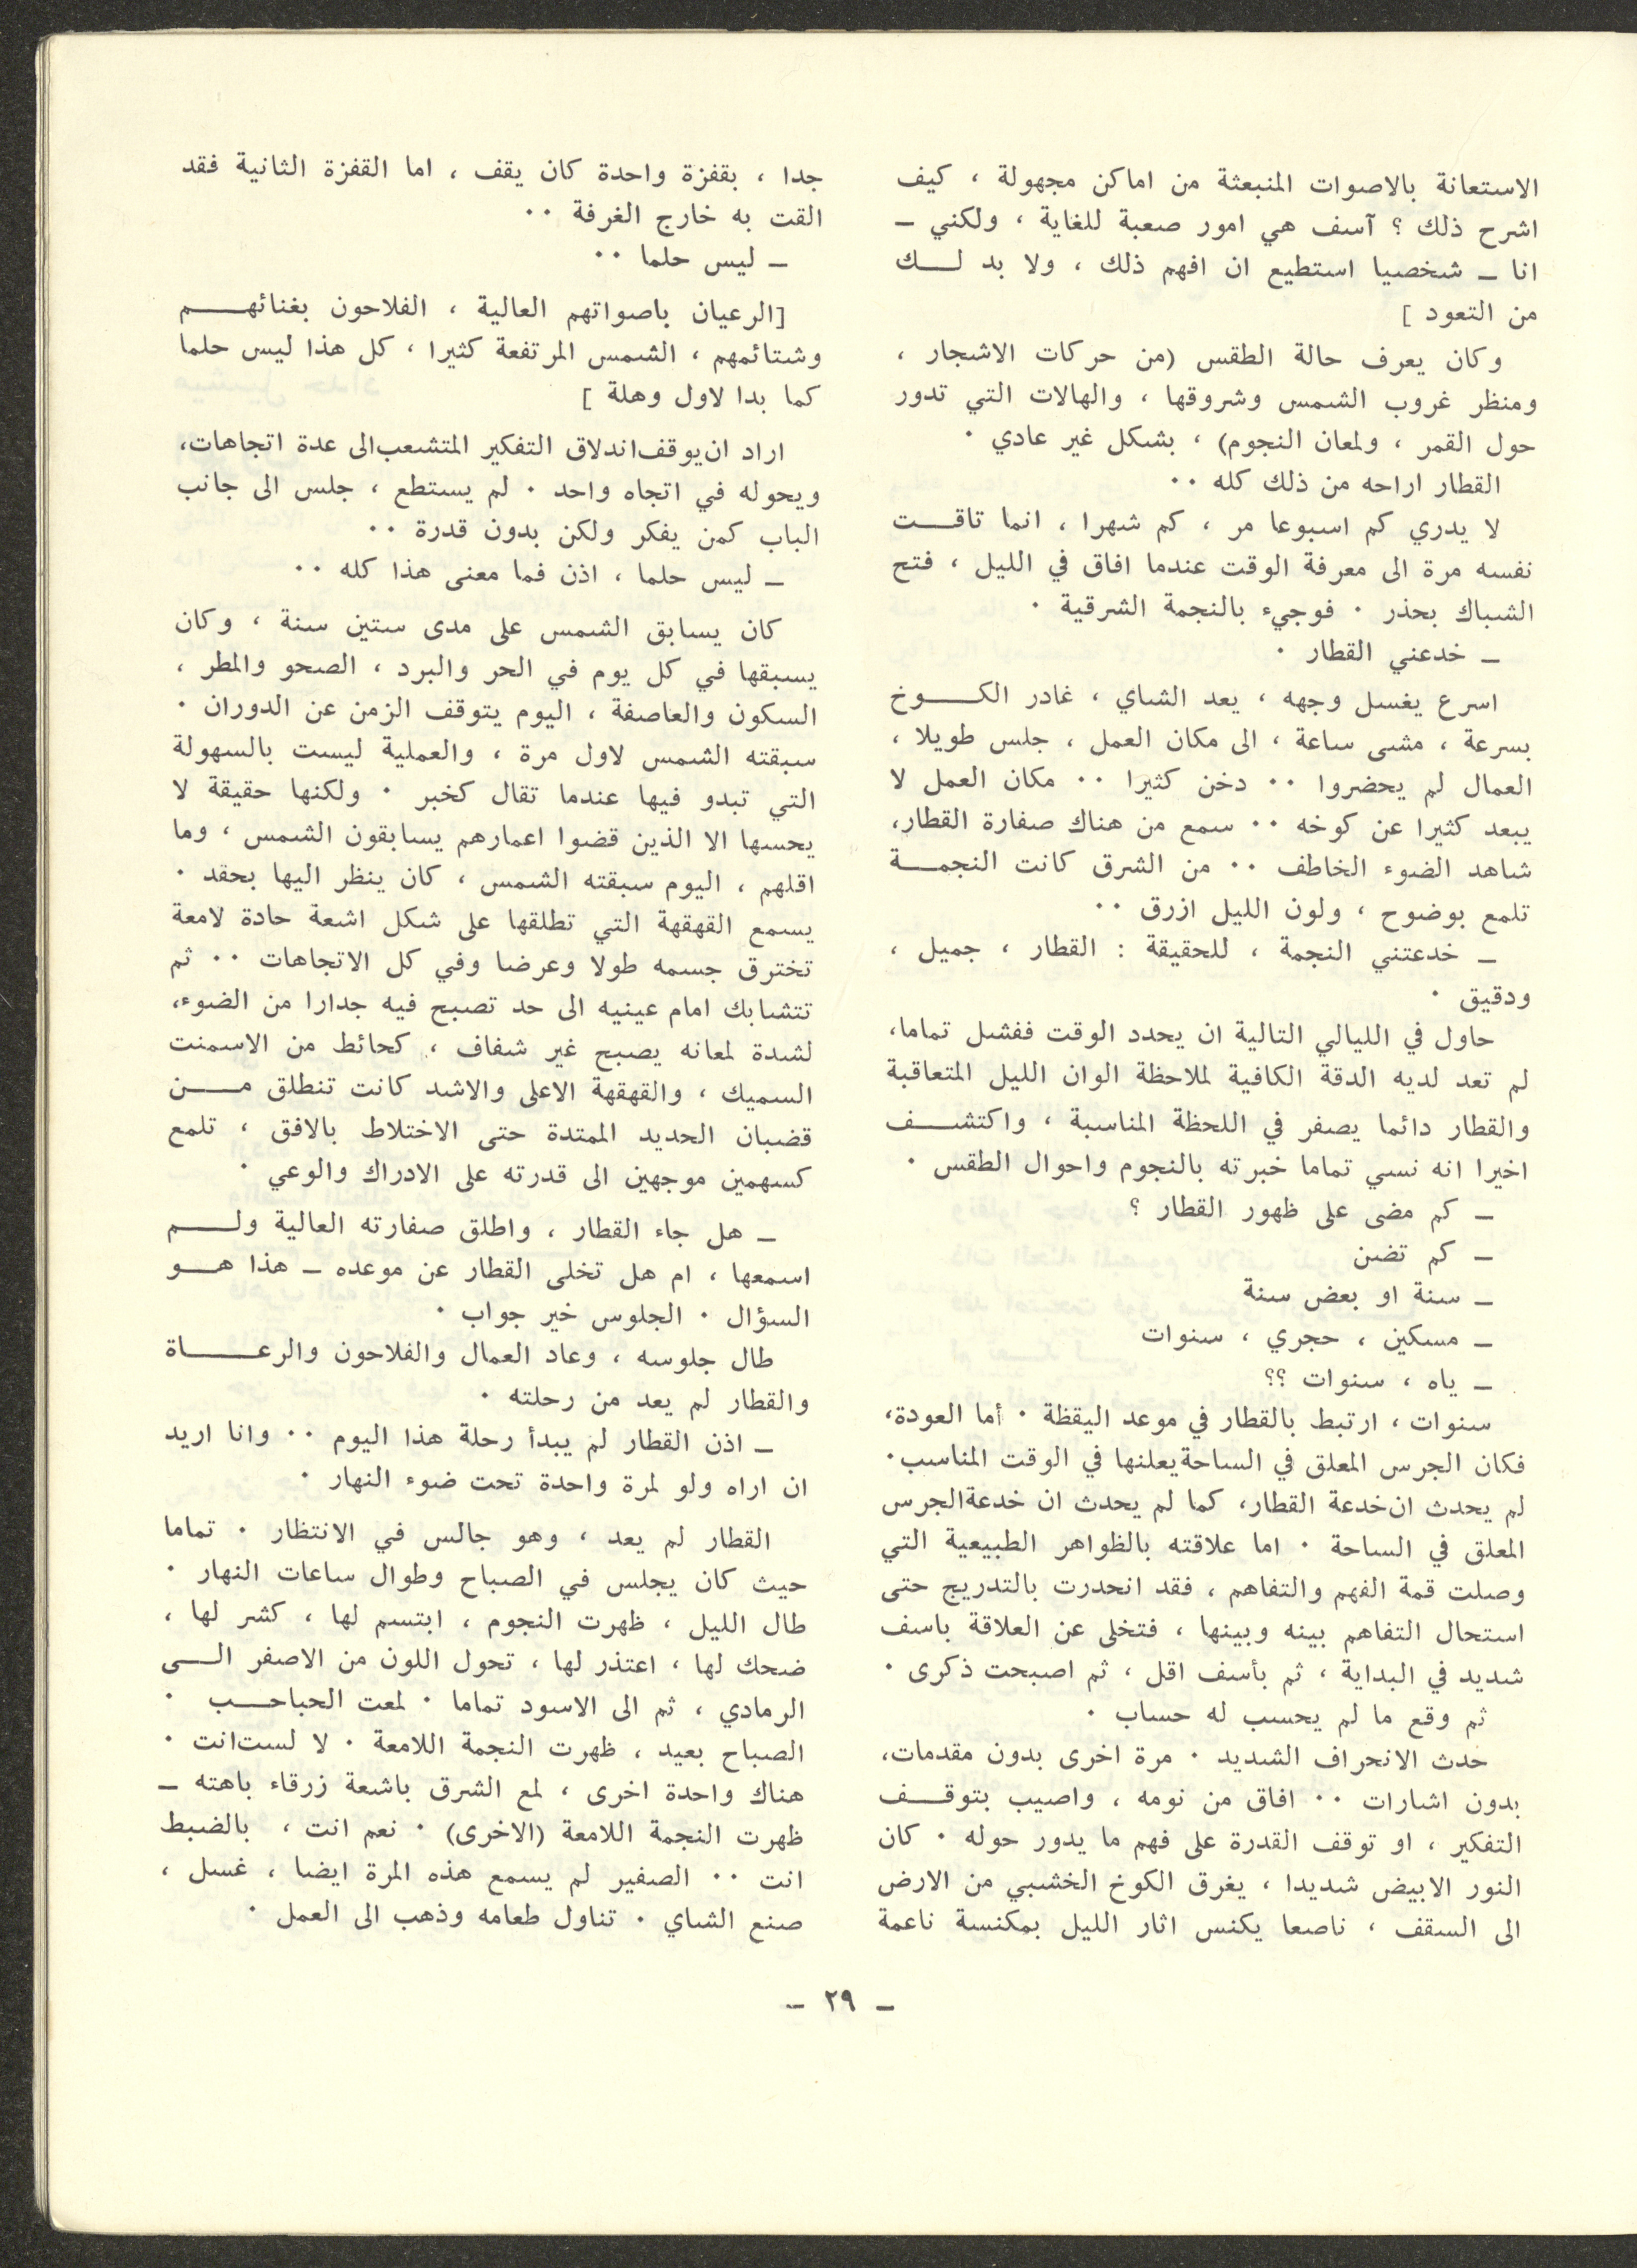 الاستعانة بالاصوات المنبعثة من اماكن مجهولة ، كيف
اشرح ذلك ؟ آسف هي امور صعبة للغاية ، ولكني ـ
انا ـ شخصيا استطيع ان افهم ذلك ، ولا بد لـــك
من التعود ]
وكان يعرف حالة الطقس (من حركات الاشجار ،
ومنظر غروب الشمس وشروقها ، والهالات التي تدور
حول القمر ، ولمعان النجوم) ، بشكل غير عادي ٠
القطار اراحه من ذلك كله ٠٠
لا يدري كم اسبوعا مر ، كم شهرا ، انما تاقـــت
نفسه مرة الى معرفة الوقت عندما افاق في الليل ، فتح
الشباك بحذر ٠ فوجيء بالنجمة الشرقية ٠
ـ خدعني القطار ٠
اسرع يغسل وجهه ، يعد الشاي ، غادر الكـــوخ
بسرعة ، مشى ساعة ، الى مكان العمل ، جلس طويلا ،
العمال لم يحضروا ٠٠ دخن كثيرا ٠٠ مكان العمل لا
يبعد كثيرا عن كوخه ٠٠ سمع من هناك صفارة القطار،
شاهد الضوء الخاطف ٠٠ من الشرق كانت النجمــة
تلمع بوضوح ، ولون الليل ازرق ٠٠
ـ خدعتني النجمة ، للحقيقة : القطار ، جميل ،
ودقيق ٠
حاول في الليالي التالية ان يحدد الوقت ففشل تماما،
لم تعد لديه الدقة الكافية لملاحظة الوان الليل المتعاقبة
والقطار دائما يصفر في اللحظة المناسبة ، واكتشـــف
اخيرا انه نسي تماما خبرته بالنجوم واحوال الطقس ٠
ـ كم مضى على ظهور القطار ؟
ـ كم تضن
ـ سنة او بعض سنة
ـ مسكين ، حجري ، سنوات
ـ ياه ، سنوات ؟؟
سنوات ، ارتبط بالقطار في موعد اليقظة ٠ أما العودة،
فكان الجرس المعلق في الساحة يعلنها في الوقت المناسب٠
لم يحدث ان خدعة القطار، كما لم يحدث ان خدعة الجرس
المعلق في الساحة ٠ اما علاقته بالظواهر الطبيعية التي
وصلت قمة الفهم والتفاهم ، فقد انحدرت بالتدريج حتى
استحال التفاهم بينه وبينها ، فتخلى عن العلاقة باسف
شديد في البداية ، ثم بأسف اقل ، ثم اصبحت ذكرى ٠
ثم وقع ما لم يحسب له حساب ٠
حدث الانحراف الشديد ٠ مرة اخرى بدون مقدمات،
بدون اشارات ٠٠ افاق من نومه ، واصيب بتوقـــف
التفكير ، او توقف القدرة على فهم ما يدور حوله ٠ كان
النور الابيض شديدا ، يغرق الكوخ الخشبي من الارض
الى السقف ، ناصعا يكنس اثار الليل بمكنسة ناعمة
جدا ، بقفزة واحدة كان يقف ، اما القفزة الثانية فقد
القت به خارج الغرفة ٠٠
ـ ليس حلما ٠٠
[الرعيان باصواتهم العالية ، الفلاحون بغنائهـــم
وشتائمهم ، الشمس المرتفعة كثيرا ، كل هذا ليس حلما
كما بدا لاول وهلة ]
اراد ان يوقف اندلاق التفكير المتشعب الى عدة اتجاهات،
ويحوله في اتجاه واحد ٠ لم يستطع ، جلس الى جانب
الباب كمن يفكر ولكن بدون قدرة ٠٠
ـ ليس حلما ، اذن فما معنى هذا كله ٠٠
كان يسابق الشمس على مدى ستين سنة ، وكان
يسبقها في كل يوم في الحر والبرد ، الصحو والمطر ،
السكون والعاصفة ، اليوم يتوقف الزمن عن الدوران ٠
سبقته الشمس لاول مرة ، والعملية ليست بالسهولة
التي تبدو فيها عندما تقال كخبر ٠ ولكنها حقيقة لا
يحسها الا الذين قضوا اعمارهم يسابقون الشمس ، وما
اقلهم ، اليوم سبقته الشمس ، كان ينظر اليها بحقد ٠
يسمع القهقهة التي تطلقها على شكل اشعة حادة لامعة
تخترق جسمه طولا وعرضا وفي كل الاتجاهات ٠٠ ثم
تتشابك امام عينيه الى حد تصبح فيه جدارا من الضوء،
لشدة لمعانه يصبح غير شفاف ، كحائط من الاسمنت
السميك ، والقهقهة الاعلى والاشد كانت تنطلق مـــن
قضبان الحديد الممتدة حتى الاختلاط بالافق ، تلمع
كسهمين موجهين الى قدرته على الادراك والوعي ٠
ـ هل جاء القطار ، واطلق صفارته العالية ولـــم
اسمعها ، ام هل تخلى القطار عن موعده ـ هذا هـــو
السؤال ٠ الجلوس خير جواب ٠
طال جلوسه ، وعاد العمال والفلاحون والرعـــاة
والقطار لم يعد من رحلته ٠
ـ اذن القطار لم يبدأ رحلة هذا اليوم ٠٠ وانا اريد
ان اراه ولو لمرة واحدة تحت ضوء النهار ٠
القطار لم يعد ، وهو جالس في الانتظار ٠ تماما
حيث كان يجلس في الصباح وطوال ساعات النهار ٠
طال الليل ، ظهرت النجوم ، ابتسم لها ، كشر لها ،
ضحك لها ، اعتذر لها ، تحول اللون من الاصفر الـــى
الرمادي ، ثم الى الاسود تماما ٠ لمعت الحباحـــب ٠
الصباح بعيد ، ظهرت النجمة اللامعة ٠ لا لست انت ٠
هناك واحدة اخرى ، لمع الشرق باشعة زرقاء باهته ـ
ظهرت النجمة اللامعة (الاخرى) ٠ نعم انت ، بالضبط
انت ٠٠ الصفير لم يسمع هذه المرة ايضا ، غسل ،
صنع الشاي ٠ تناول طعامه وذهب الى العمل ٠
ـ ٢٩ ـ